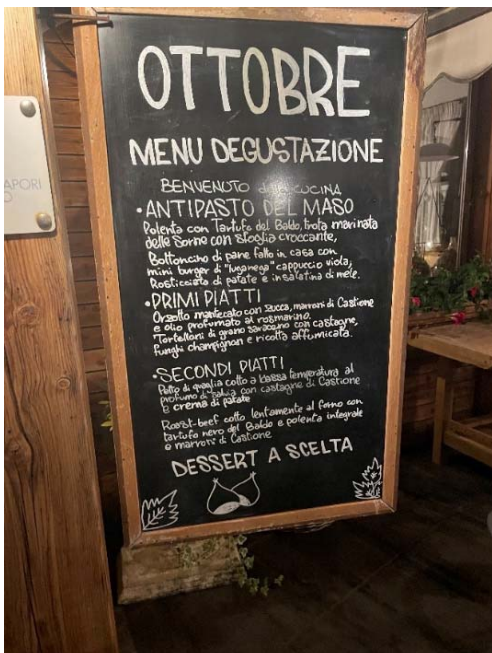 OTTOBRE
MENU DEGUSTAZIONE
BENVENUTO dalla CUCINA
•ANTIPASTO DEL MASO
Polenta con Tartufo del Baldo, trota marinata
delle Sorne con sfoglia croccante,
Bottoncino di pane fatto in casa con
mini burger di "luganega" cappuccio viola,
Rosticciata di patate e insalatina di mele.
•PRIMI PIATTI
Orzotto mantecato con zucca, marroni di Castione
e olio profumato al rosmarino.
Tortelloni di grano saraceno con castagne,
funghi champignon e ricotta affumicata.
•SECONDI PIATTI
Petto di quaglia cotto a bassa temperatura al
profumo di salvia con castagne di Castione
e crema di patate
Roast-beef cotto lentamente al forno con
tartufo nero del Baldo e polenta integrale
e marroni di Castione
DESSERT A SCELTA
APORI
O